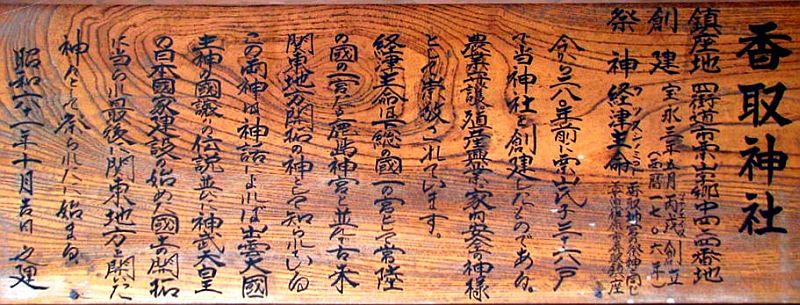 香取神社
鎮座地 四街道市栗山字郷中四二四番地
創建 宝永三年五月 丙戌 創立
(西暦一七〇六年)
祭神 経津主命
フツヌシノミコト
今から二八〇年前に栗山氏子三十六戸
で当神社を創建したものである。
農業守護殖産興業家内安全の神様
として崇敬されています。
経津主命は下総の國の一の宮として常陸
の國の一の宮なる鹿島神宮と並んで古来
関東地方開拓の神として知られている
この両神は神話によれば出雲大國
主神の國譲の伝説並に神武天皇
の日本國家建設の始め國土の開拓
に当られ最後に関東地方を開いた
神々として祭られたに始まる。
昭和六十一年十月吉日 之建